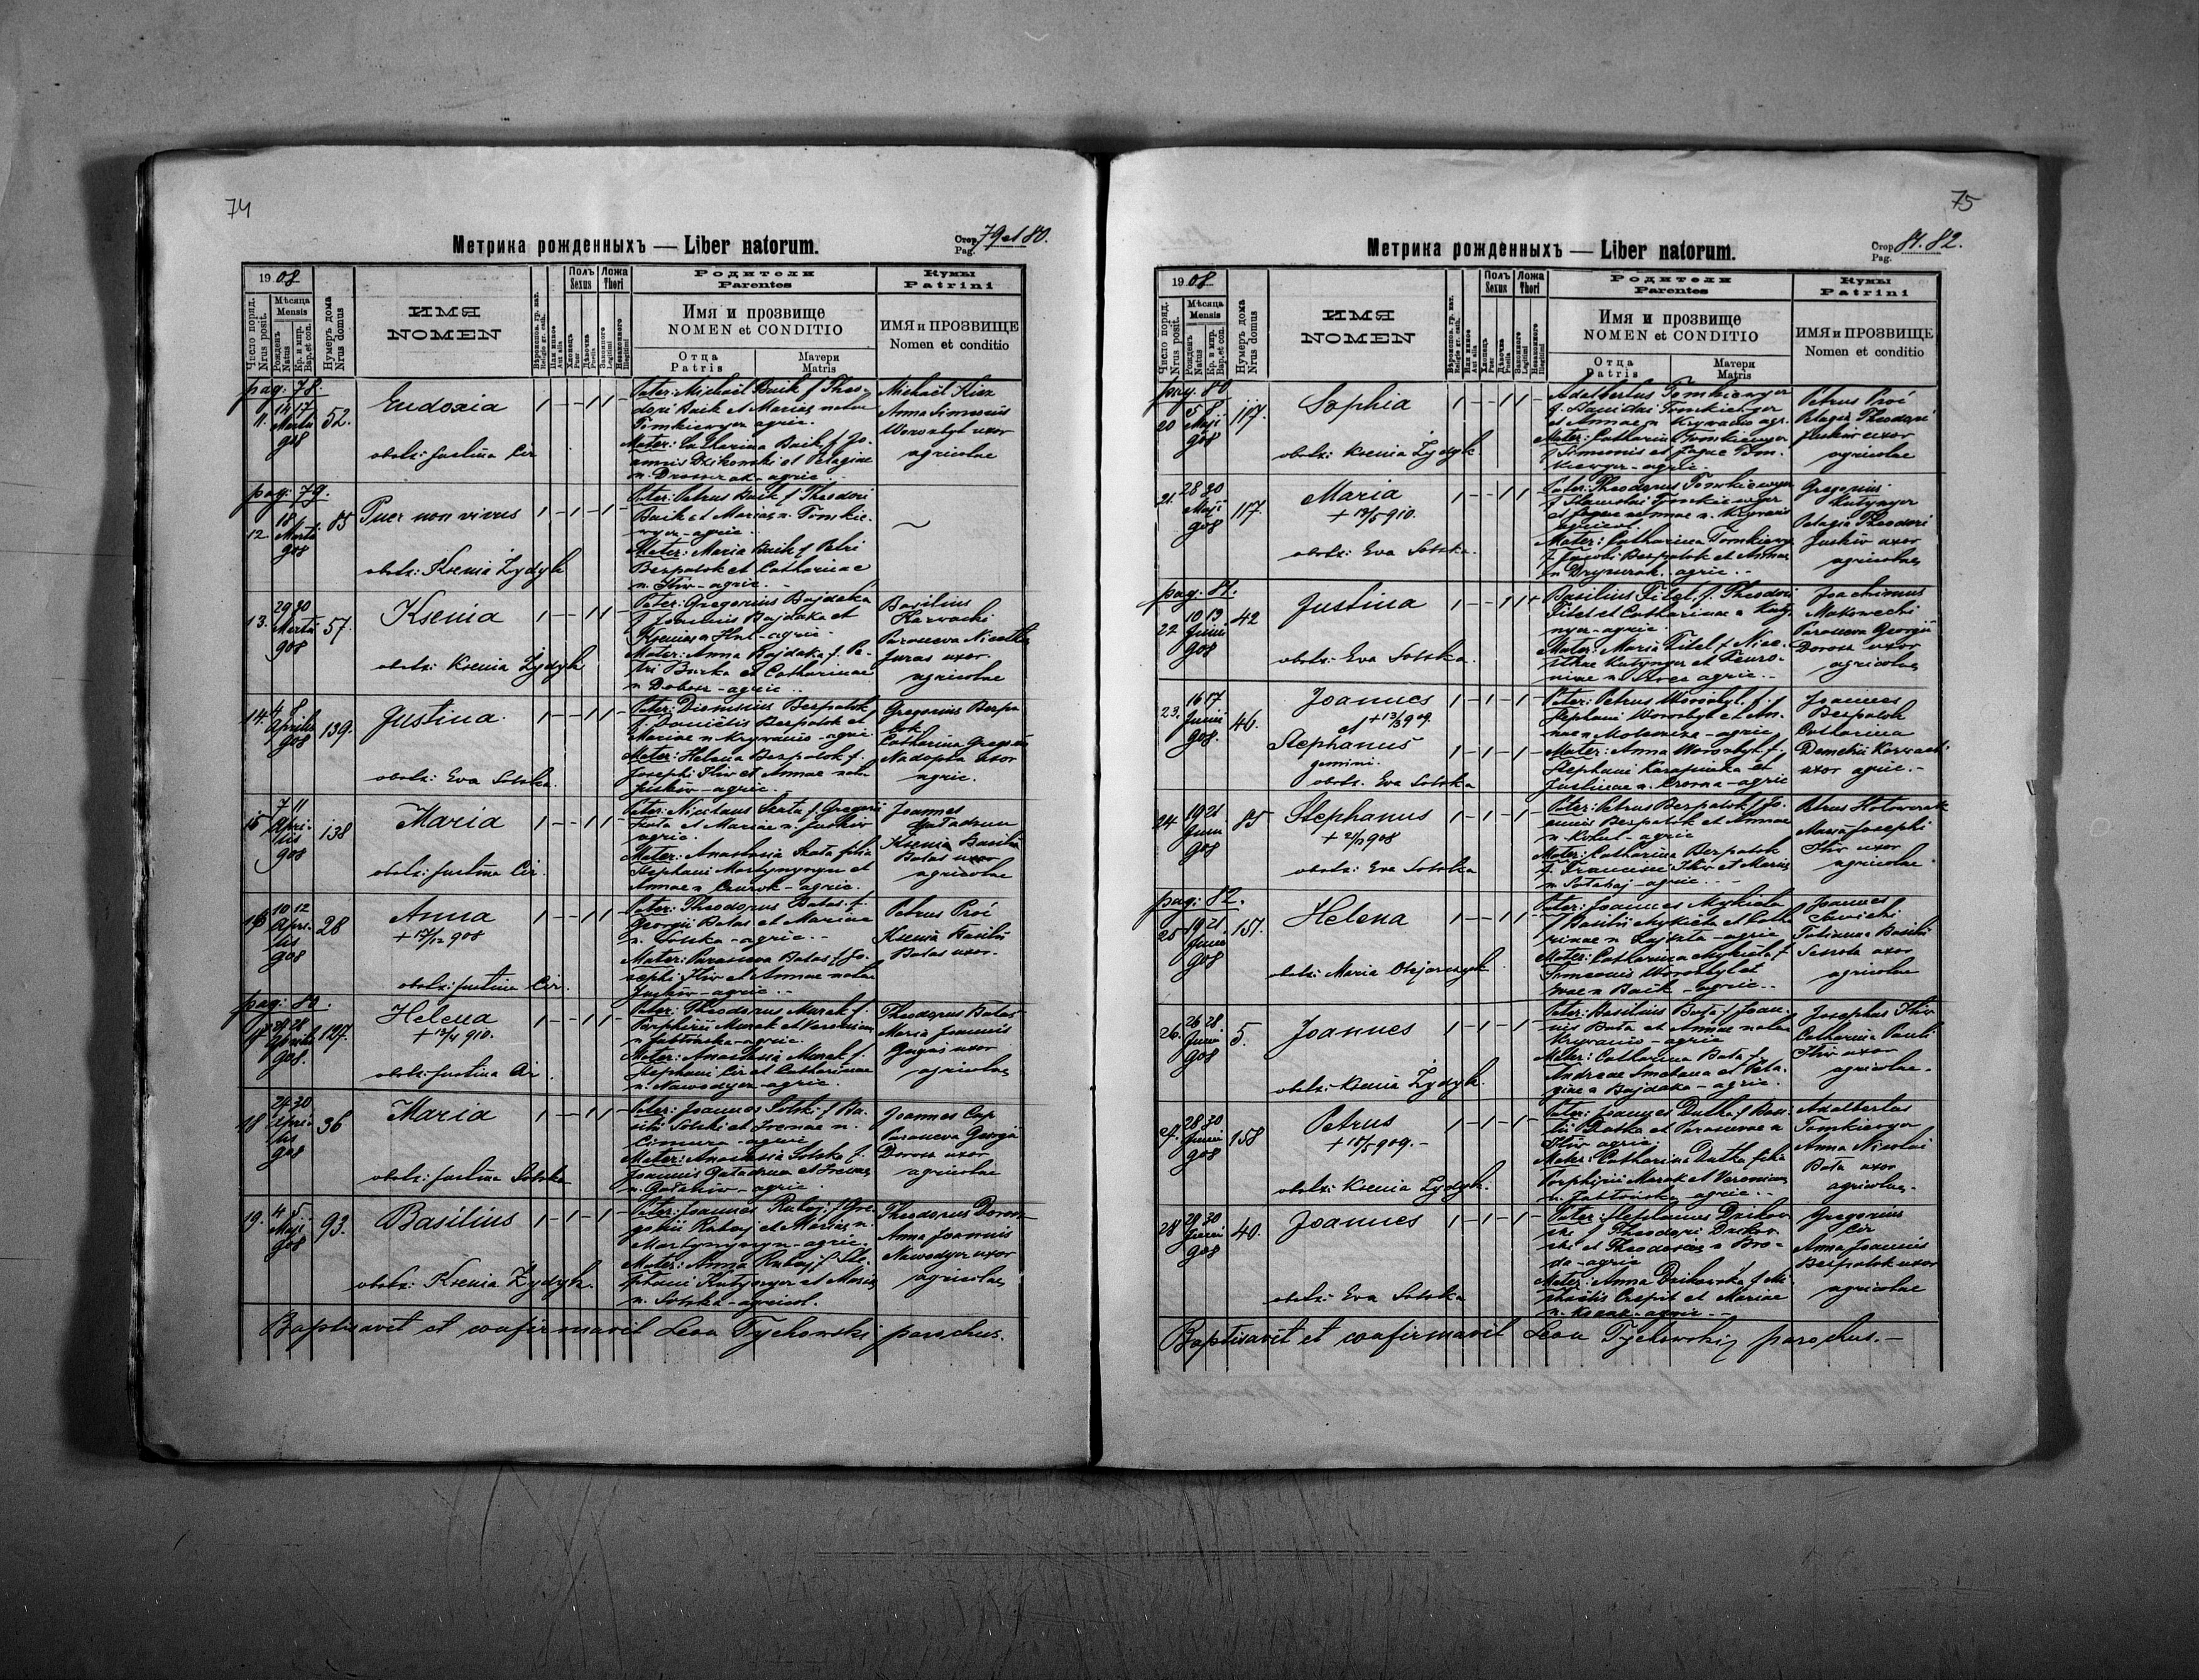 74
Метрика рожденныхъ — Liber natorum.
Стор. Pag. 79 et 80.
1908
Число поряд. Nrus posit.
Мѣсяца Mensis
Рожденъ Natus
Кр. и мпр. Bap. et con.
Нумеръ дома Nrus domus
ИМЯ
NOMEN
Полъ Sexus
Хлопець Puer
Дѣвочка Puella
Ложа Thori
Законного Legitimi
Незаконного Illegitimi
Родители
Parentes
Имя и прозвище
NOMEN et CONDITIO
Отца Patris
Матери Matris
Кумы
Patrini
ИМЯ и ПРОЗВИЩЕ
Nomen et conditio
pag: 78.
11. 14 17 Martii 908 52. Eudoxia
obstz: Justina Cir
Pater: Michaël Baik f. Theo-
dori Baik et Mariae natae
Tomkiewycz agric.
Mater: Catharina Baik f. Jo-
annis Dzikowski et Pelagiae
Michaël
Anna Simeonis
Worobyt uxor
agricolae
pag: 79.
12. 18 Martii 908 85 Puer non vivus
obstz: Ksenia Zydyk
Pater: Petrus Baik f. Theodori
Baik et Mariae n. Tomkie-
wycz - agric.
Mater: Maria Baik f. Petri
Bezpalok et Catharinae
n. Ilkiw - agric.
13. 29 30 Martii 908 57. Ksenia
obstz: Ksenia Zydyk
Pater: Gregorius Bajdaka
f. Joannis Bajdaka et
Kseniae n. Hul - agric.
Mater: Anna Bajdaka f. Pe-
tri Burka et Catharinae
n. Dobosz - agric.
Basilius
Karwacki
Parasceva Nicolai
Juras uxor
agricolae
14. Aprilis 908 139. Justina.
obstz: Eva Solska.
Pater: Dionisius Bezpalok
f. Daniëlis Bezpalok et
Mariae n. Krywanio - agric.
Mater: Helena Bezpalok f.
Josephi Ilkiw et Annae natae
Juskiw - agric.
Gregorius Bezpa-
lok
Catharina Gregorii
Nadopta uxor
agric.
15 7 11 Aprilis 908 138 Maria
obstz: Justina Cir.
Pater: Nicolaus Szata f. Gregorii
Szata et Mariae n. Juskiw
agric.
Mater: Anastasia Szata filia
Stephani Martynyszyn et
Annae n. - agric.
Joannes
Galadzun
Ksenia Basilii
Balas uxor
agricolae
16 10 12 Aprilis 908 28 Anna
+ 17/12 908
obstz: Justina Cir.
Pater: Theodorus Balas f.
Georgii Balas et Mariae
n. Solska - agric.
Mater: Parasceva Balas f. Jo-
sephi Ilkiw et Annae natae
Juskiw - agric.
Petrus Proć
Ksenia Basilii
Balas uxor.
pag: 80.
17 28 Aprilis 908. 127. Helena
+ 12/4 910.
obstz: Justina Cir.
Pater: Theodorus Marak f.
Porphirii Marak et Veronicae
n. Jabłońska - agric.
Mater: Anastasia Marak f.
Stephani Cir et Catharinae
n. Nawodyn - agric.
Theodorus Balas
Maria Joannis
uxor
agricolae
18 30 Aprilis 908 36 Maria
obstz: Justina Solska
Pater: Joannes Solski f. Ba-
silii Solski et Irenae n.
- agric.
Mater: Anastasia Solska f.
Joannis Gaładzun et Irenae
- agric.
Joannes Cap
Parasceva Georgii
Dorosz uxor
agricolae
19. 4 5 Maji 908 93. Basilius
obstz: Ksenia Zydyk.
Pater: Joannes Rubaj f. Gre-
gorii Rubaj et Mariae n.
Martynyszyn - agric.
Mater: Anna Rubaj f. Ste-
phani Kutynycz et Mariae
n. Solska - agricol.
Theodorus Dorosz
Anna Joannis
Nawodyn uxor
agricolae
Baptisavit et confirmavit Leon Tychowskij parochus.
75
Метрика рожденныхъ — Liber natorum.
Стор. Pag. 81. 82.
1908
Число поряд. Nrus posit.
Мѣсяца Mensis
Рожденъ Natus
Кр. и мпр. Bap. et con.
Нумеръ дома Nrus domus
ИМЯ
NOMEN
Полъ Sexus
Хлопець Puer
Дѣвочка Puella
Ложа Thori
Законного Legitimi
Незаконного Illegitimi
Родители
Parentes
Имя и прозвище
NOMEN et CONDITIO
Отца Patris
Матери Matris
Кумы
Patrini
ИМЯ и ПРОЗВИЩЕ
Nomen et conditio
pag. 80
20 5 8 Maji 908 117. Sophia
obstz: Ksenia Zydyk
Adalbertus Tomkiewycz
f. Danielis Tomkiewycz
et Annae n. Krywanio agr.
Mater: Catharina Tomkiewycz
f. Simeonis et Tom-
kiewycz - agric.
Petrus Proć
Pelagia Theodori
Juskiw uxor
agricolae
21. 28 30 Maji 908 117. Maria
+ 13/5 910.
obstz: Eva Solska.
Pater: Theodorus Tomkiewycz
f. Tomkiewycz
n. Krywanio
agricol.
Mater: Catharina Tomkiewycz
f. Jacobi Bezpalok et Annae
- agric.
Gregorius
Kutynycz
Pelagia Theodori
Juskiw uxor
agricolae
pag. 81.
22 10 13 Junii 908 42 Justina
obstz: Eva Solska.
Basilius Titel f. Theodori
Titel et Catharinae n. Kuty-
nycz - agric.
Mater: Maria Titel f. Nice-
thae Kutynycz et Feuro-
niae n. agric.
Joachimus
Makowecki
Parasceva Georgii
Dorosz uxor
agricolae
23. 16 17 Junii 908. 46. Joannes
et + 13/3 909.
Stephanus
gemini.
obstz. Eva Solska
Pater: Petrus Worobyt f.
Stephani Worobyt et An-
nae n. - agric.
Mater: Anna Worobyt f.
Stephani et
Justinae n. Czorna - agric.
Joannes
Bezpalok
Catharina
Demetrii Karwacki
uxor agric. -
24 19 21 Junii 908 85 Stephanus
+ 21/11 908
obstz: Eva Solska
Pater: Petrus Bezpalok f. Jo-
annis Bezpalok et Annae
n. - agric
Mater: Catharina Bezpalok
f. Francisci Ilkiw et Mariae
- agric.
Petrus Hotowczak
Maria Josephi
Ilkiw uxor
agricolae
pag: 82.
25 19 21 Junii 908 151. Helena
obstz: Maria Olejarczyk
Pater: Joannes Mykieta
f. Basilii Mykieta et Catha-
rinae n. - agric
Mater: Catharina Mykieta f.
Simeonis Worobyt et
Evae n. Baik - agric.
Joannes
Sawicki
Tatianna Basilii
uxor
agricolae
26. 26 28. Junii 908 5. Joannes
obstz: Ksenia Zydyk.
Pater: Basilius Bata f. Joan-
nis Bata et Annae natae
Krywanio - agric
Mater: Catharina Bata f.
Andreae Smetana et Pela-
giae n. Bajdaka - agric.
Josephus Ilkiw
Catharina Pauli
Ilkiw uxor
agricolae.
27. 28 30 Junii 908 158 Petrus
+ 18/5 909. -
obstz: Ksenia Zydyk.
Pater: Joannes Dutka f. Basi-
lii Dutka et Parascevae n.
Ilkiw agric.
Mater: Catharina Dutka filia
Porphirii Marak et Veronicae
n. Jabłońska agric.
Adalbertus
Tomkiewycz
Anna Nicolai
Bata uxor
agricolae.
28 29 30 Junii 908 40. Joannes
obstz: Eva Solska
Pater: Stephanus Dzikow-
ski f. Theodori Dzikow-
ski et Theodosiae n. Bro-
da - agric
Mater: Anna Dzikowska f. Mi-
chaëlis Czepil et Mariae
n. - agric. -
Gregorius
Cir
Anna Joannis
Bezpalok uxor
agricolae
Baptisavit et confirmavit Leon Tychowskij parochus. -